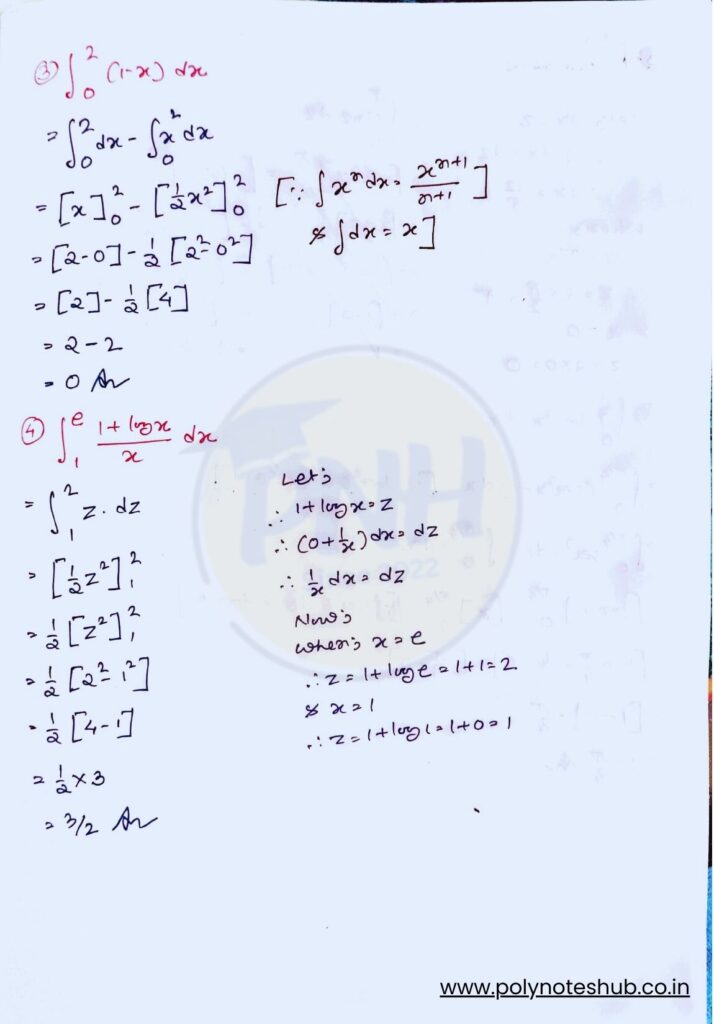 ③ ∫₀² (1-x) dx
= ∫₀² dx - ∫₀² x dx
= [x]₀² - [½x²]₀² [∵ ∫xⁿ dx = xⁿ⁺¹/n+1]
& ∫dx = x]
= [2-0] - ½ [2²-0²]
= [2] - ½ [4]
= 2 - 2
= 0 Ans
④ ∫₁ᵉ 1+logx/x dx
= ∫₁² z. dz
= [½z²]₁²
= ½ [z²]₁²
= ½ [2²-1²]
= ½ [4-1]
= ½ × 3
= 3/2 Ans
Let;
∴ 1+logx = z
∴ (0+1/x) dx = dz
∴ 1/x dx = dz
Now;
when; x = e
∴ z = 1+loge = 1+1 = 2
& x = 1
∴ z = 1+log1 = 1+0 = 1
PNH
2022
www.polynoteshub.co.in